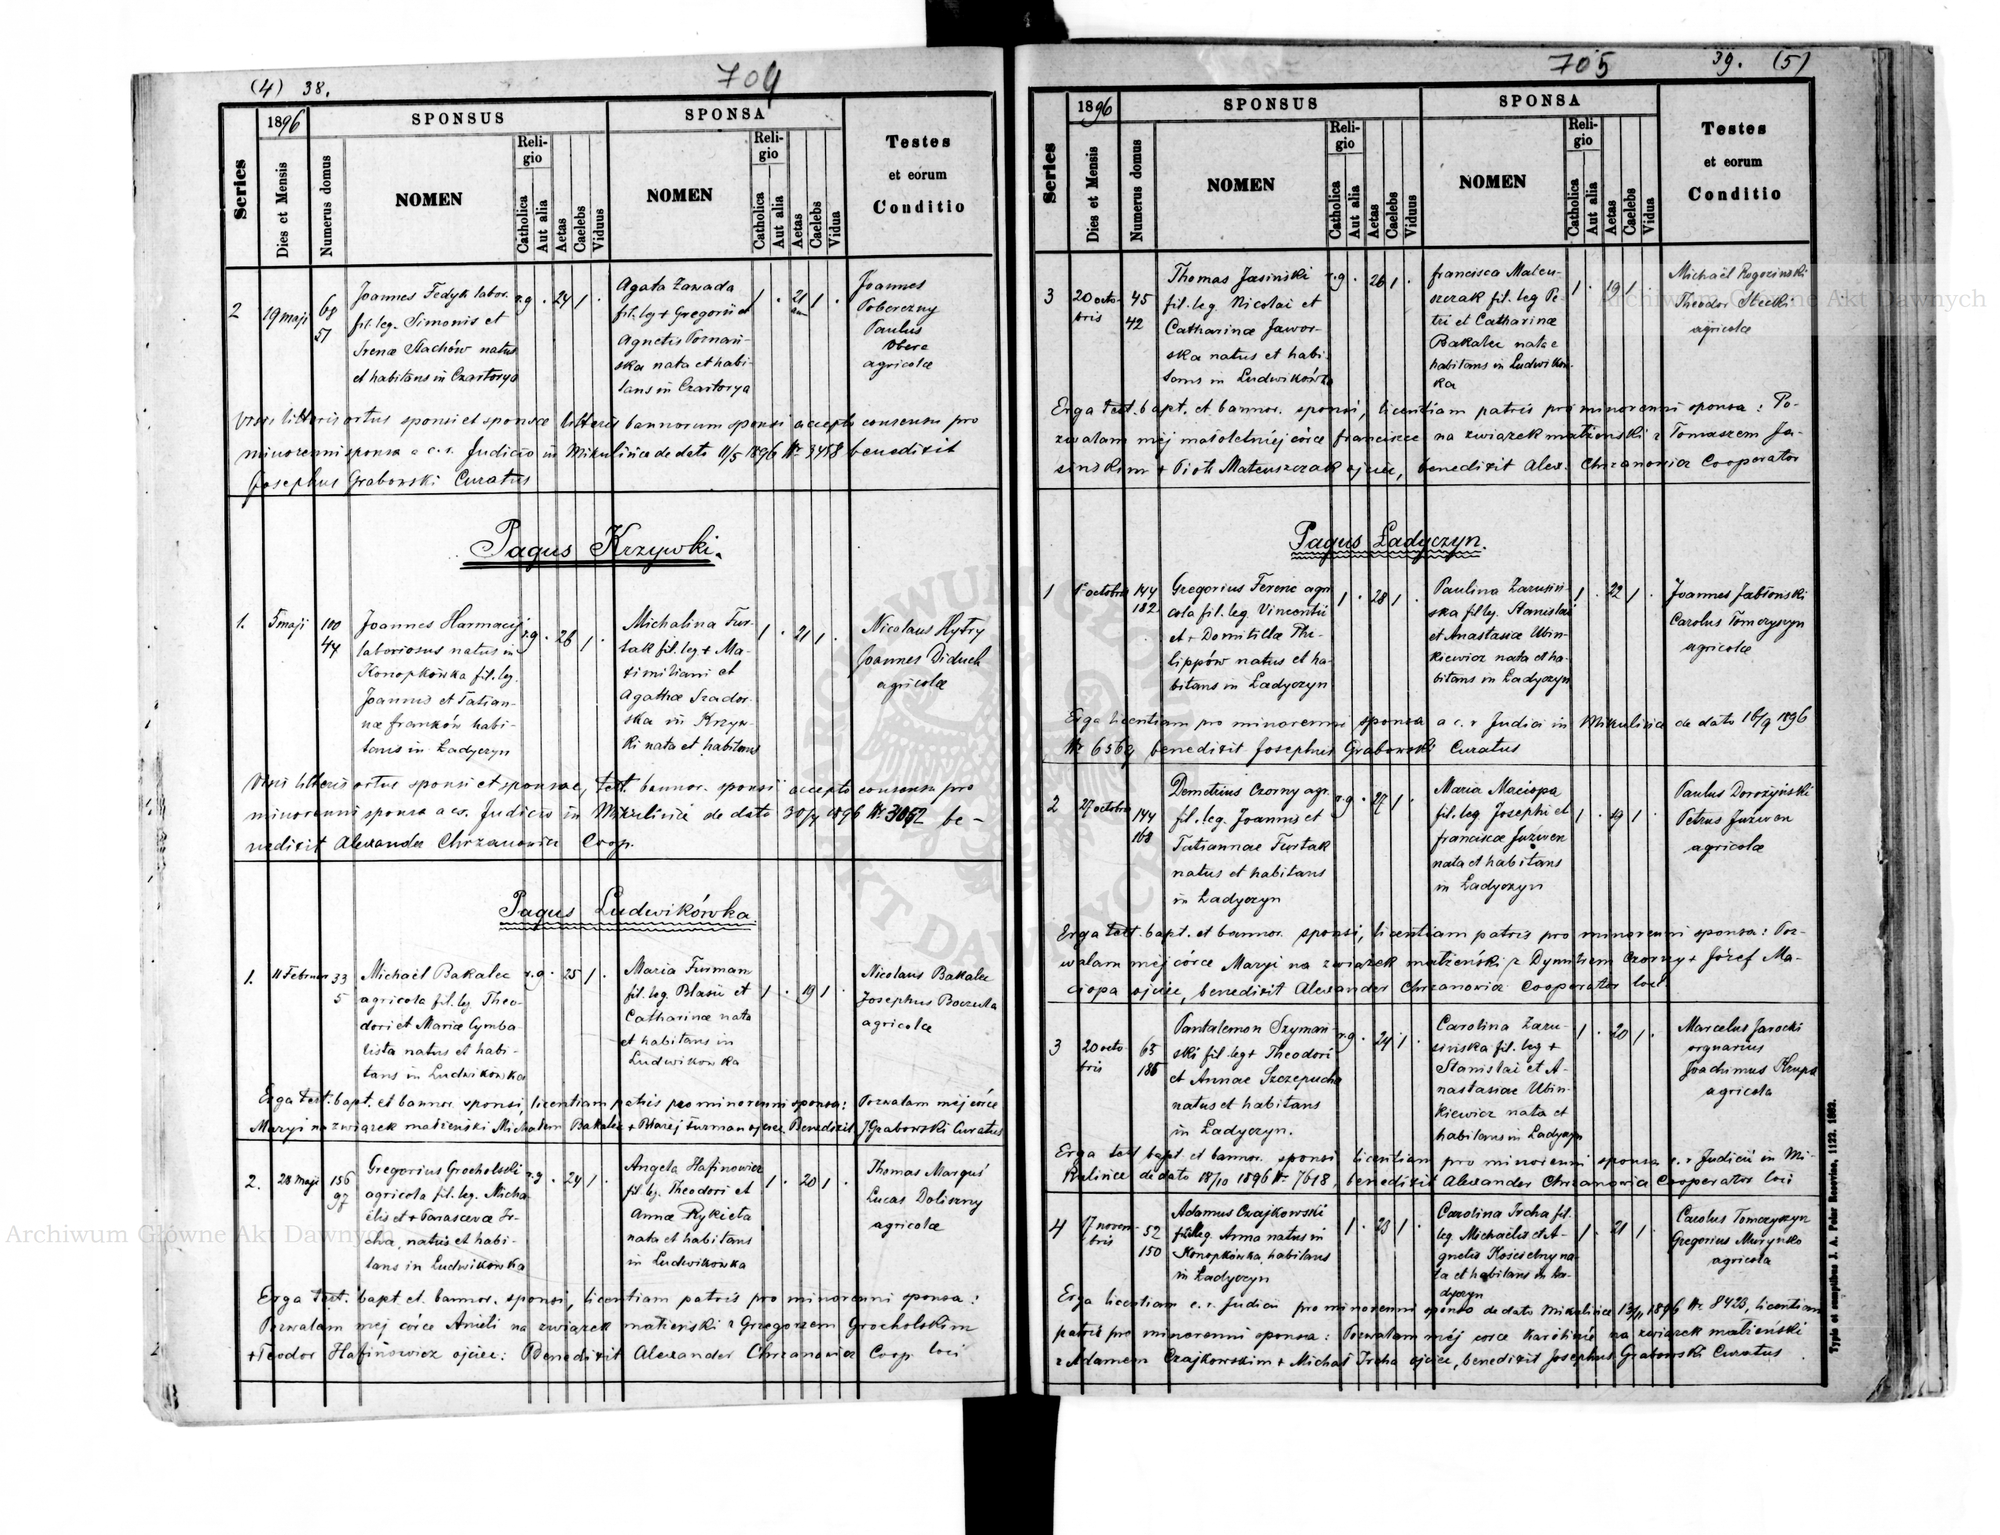 (4) 38.
704
Series
1896
Dies et Mensis
Numerus domus
SPONSUS
NOMEN
Religio
Catholica
Aut alia
Aetas
Caelebs
Viduus
SPONSA
NOMEN
Religio
Catholica
Aut alia
Aetas
Caelebs
Vidua
Testes
et eorum
Conditio
2
19 maji
68
51
Joannes Fedyk labor.
fil. leg. Simonis et
Irenæ Stachów natus
et habitans in Czartorya
r.g. 24 1
Agata Zawada
fil. leg + Gregorii et
Agnetis Poznań-
ska nata et habi-
tans in Czartorya
1 21 1
Joannes
Poberezny
Paulus
agricolæ
Visis litteris ortus sponsi et sponsæ litteris bannorum sponsi accepto consensu pro
minorenni sponsa a c. r. Judicio in Mikulińce de dato 11/5 1896 Nr 3458 benedixit
Josephus Grabowski Curatus
Pagus Krzywki.
1.
5 maji
100
44
Joannes Harmacij
laboriosus natus in
Konopkówka fil. leg.
Joannis et Tatian-
næ Franków habi-
tans in Ładyczyn
r.g. 26 1
Michalina Fur-
tak fil. leg + Ma-
ximiliani et
Agathæ Szador-
ska in Krzyw-
ki nata et habitans
1 21 1
Nicolaus Hytry
Joannes Diduch
agricolæ
Visis litteris ortus sponsi et sponsae, test. bannor. sponsi accepto consensu pro
minorenni sponsa a c.r. Judicio in Mikulińce de dato 30/4 1896 Nr. 3052 be-
nedixit Alexander Chrzanowicz Coop.
Pagus Ludwikówka.
1.
11 Februar
33
5
Michaël Bakalec
agricola fil. leg Theo-
dori et Mariæ Cymba-
lista natus et habi-
tans in Ludwikówka
r.g. 25 1
Maria Furman
fil. leg. Blasii et
Catharinæ nata
et habitans in
Ludwikowka
1 19 1
Nicolaus Bakalec
Josephus Baczula
agricolæ
Erga test. bapt. et bannor. sponsi, licentiam patris pro minorenni sponsa: Pozwalam mej córce
Maryi na związek małżenski Michałem Bakalec + Błażej Furman ojciec. Benedixit J Grabowski Curatus
2.
28 maji
156
97
Gregorius Grocholski
agricola fil. leg. Micha-
ëlis et + Parascevæ Ir-
cha, natus et habi-
tans in Ludwikówka
r.g. 24 1
Angela Hafinowicz
fil. leg. Theodori et
Annæ Rykieta
nata et habitans
in Ludwikowka
1 20 1
Thomas Marguś
Lucas Doliszny
agricolæ
Erga test. bapt. et. bannor. sponsi, licentiam patris pro minorenni sponsa:
Pozwalam mej córce Anieli na związek małżenski z Grzegorzem Grocholskim
+ Teodor Hafinowicz ojciec: Benedixit Alexander Chrzanowicz Coop. loci
705
39. (5)
Series
1896
Dies et Mensis
Numerus domus
SPONSUS
NOMEN
Religio
Catholica
Aut alia
Aetas
Caelebs
Viduus
SPONSA
NOMEN
Religio
Catholica
Aut alia
Aetas
Caelebs
Vidua
Testes
et eorum
Conditio
3
20 octo-
bris
45
42
Thomas Jasiniski
fil. leg. Nicolai et
Catharinæ Jawor-
ska natus et habi-
tans in Ludwikówka
r.g. 26 1
Francisca Mateu-
szczak fil. leg Pe-
tri et Catharinæ
Bakalec nata e
habitans in Ludwików-
ka
1 19 1
Michaël Rogozinski
Theodor Stecki
agricolæ
Erga test. bapt. et. bannor. sponsi, licentiam patris pro minorenni sponsa: Po-
zwalam mej małoletniej córce Franciszce na związek małżenski z Tomaszem Ja-
sinskim + Piotr Mateuszczak ojciec, benedixit Alex. Chrzanowicz Cooperator
Pagus Ładyczyn.
1
1 octobris
144
182
Gregorius Ferenc agri-
cola fil. leg. Vincentii
et + Domitillæ Phi-
lippów natus et ha-
bitans in Ładyczyn
1 28 1
Paulina Zarusiń-
ska fil leg. Stanislai
et Anastasiæ Ubin-
kiewicz nata et ha-
bitans in Ładyczyn
1 22 1
Joannes Jabłonski
Carolus Tomczyszyn
agricolæ
Erga licentiam pro minorenni sponsa a c. r Judicii in Mikulińce de dato 16/9 1896
Nr 6569 benedixit Josephus Grabowski Curatus
2
27 octobris
144
168
Demetrius Czorny agr.
fil. leg. Joannis et
Tatiannae Furtak
natus et habitans
in Ładyczyn
r.g. 27 1
Maria Maciopa
fil. leg Josephi et
Franciscæ Juzwen
nata et habitans
in Ładyczyn
1 19 1
Paulus Dorozyński
Petrus Juzwen
agricolæ
Erga test. bapt. et bannor. sponsi, licentiam patris pro minorenni sponsa: Poz-
walam mej córce Maryi na związek małżeński z Dymitrem Czorny + Józef Ma-
ciopa ojciec, benedixit Alexander Chrzanowicz Cooperator loci
3
20 octo
bris
65
186
Pantalemon Szymań-
ski fil. leg + Theodori
et Annae Szczepucha
natus et habitans
in Ładyczyn.
r.g. 24 1
Carolina Zaru-
sińska fil. leg +
Stanislai et A-
nastasiae Ubin-
kiewicz nata et
habitans in Ładyczyn
1 20 1
Marcelus Jarocki
orgnarius
Joachimus Krupa
agricola
Erga test bapt. et bannor. sponsi licentiam pro minorenni sponsa c. r Judicii in Mi-
kulińce de dato 18/10 1896 Nr. 7618, benedixit Alexander Chrzanowicz Cooperator loci
4
17 novem
bris
52
150
Adamus Czajkowski
fil. illeg. Anna natus in
Konopkówka, habitans
in Ładyczyn
1 23 1
Carolina Ircha fil.
leg. Michaëlis et A-
gnetis Kościelny na-
ta et habitans in Ła-
dyczyn
1 21 1
Carolus Tomczyczyn
Gregorius Muryńko
agricola
Erga licentiam c. r. Judicii pro minorenni sponso de dato Mikulińce 13/11 1896 Nr 8423, licentiam
patris pro minorenni sponsa: Pozwalam mej córce Karolinie na związek małżeński
z Adamem Czajkowskim + Michał Ircha ojciec, benedixit Josephus Grabowski Curatus
Typis et sumptibus J. A. Pelar Resoviae, 1122. 1892.
Archiwum Główne Akt Dawnych
Archiwum Główne Akt Dawnych
ARCHIWUM GŁÓWNE AKT DAWNYCH